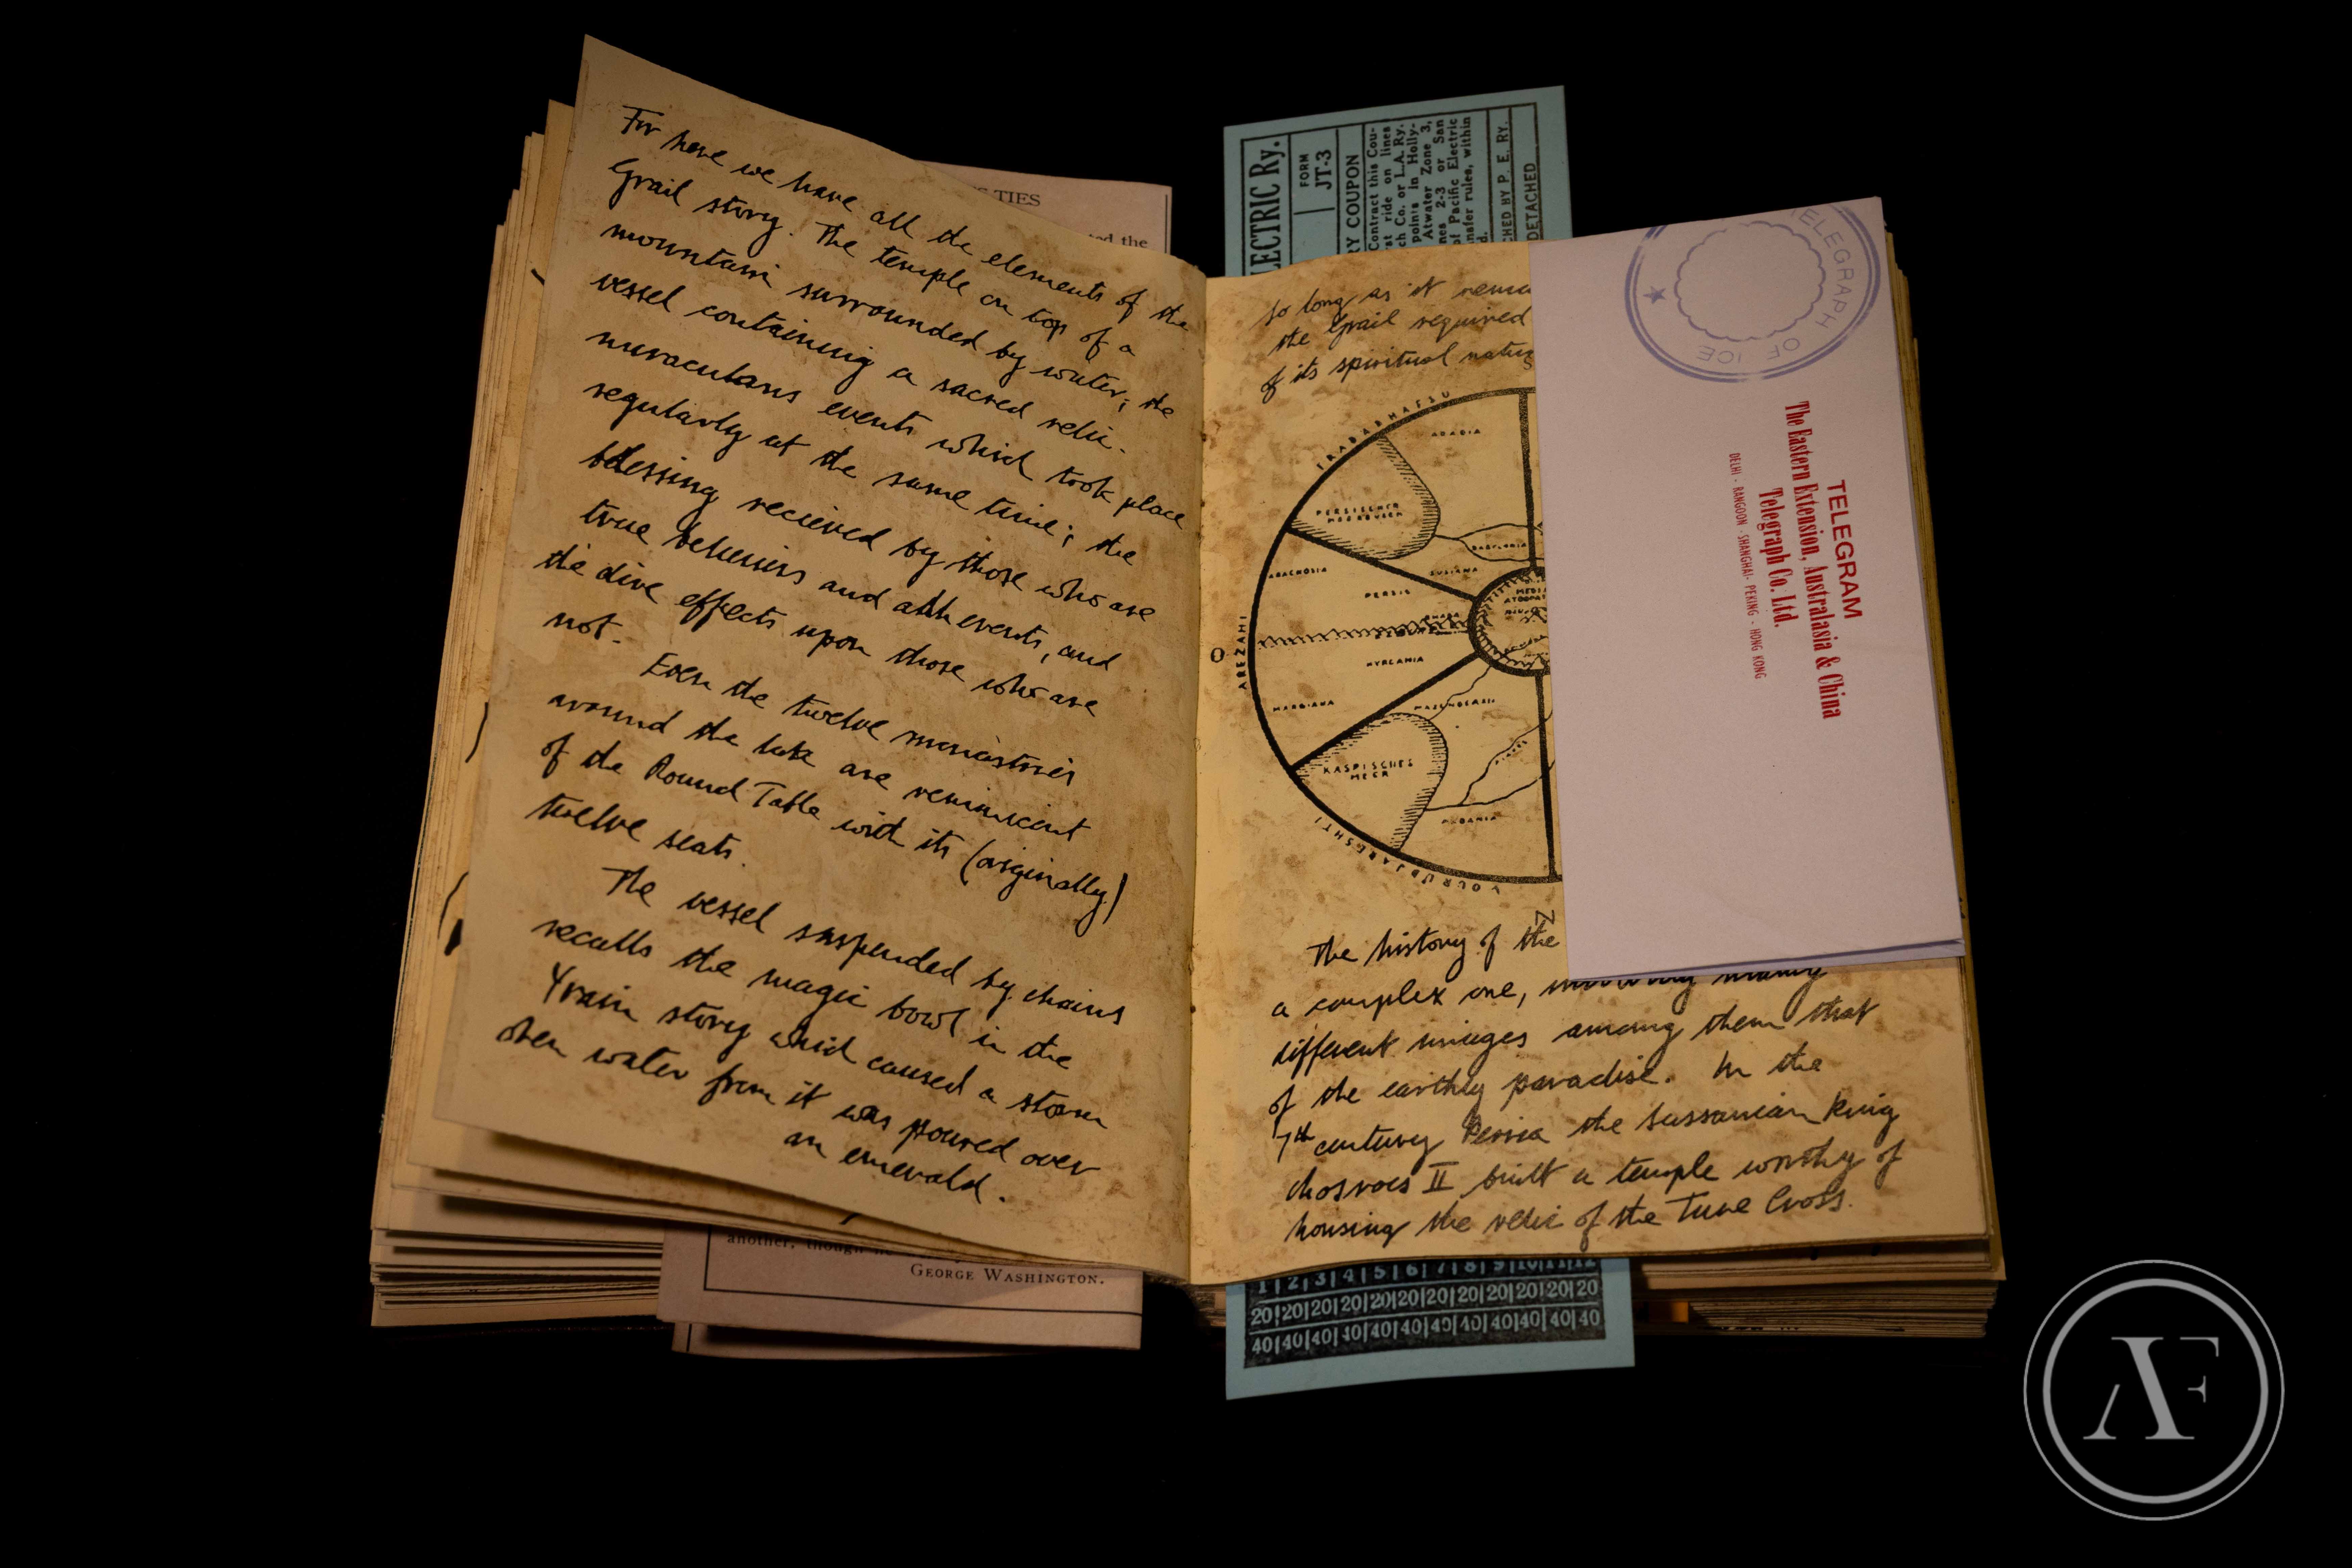 For here we have all the elements of the
Grail story. The temple on top of a
mountain surrounded by water; the
vessel containing a sacred relic.
miraculous events which took place
regularly at the same time; the
blessing recieved by those who are
true believers and
the dire effects upon those who are
not.
Even the twelve monastries
around the lake are reminiscent
of the Round Table with its (originally)
twelve seats.
The vessel suspended by chains
recalls the magic bowl in the
Yvain story which caused a storm
when water from it was poured over
an emerald.
TIES
ed the
another, though
GEORGE WASHINGTON.
LECTRIC RY.
FORM
JT-3
RY COUPON
Contract this Cou-
st ride on lines
ch Co. or L.A. Ry.
points in Holly-
Atwater Zone 3,
nes 2-3 or San
of Pacific Electric
nsfer rules, within
d.
CHED BY P. E. RY.
DETACHED
so long as it rema
the Grail required
of its spiritual natur
ARABIA
PERSISCHER
MEERBUSEN
BABYLONIA
SUSIANA
ARACHOSIA
PERSIS
AREZAHI
HYRCANIA
MARGIANA
MAZENDERAN
KASPISCHES
MEER
VOURUBJARESHTI
The history of the
a complex one, many
different images among them that
of the earthly paradise. In the
7th century Persia the Sassanian King
Chosroes II built a temple worthy of
housing the relic of the True Cross.
TELEGRAPH OFFICE
TELEGRAM
The Eastern Extension, Australasia & China
Telegraph Co. Ltd.
DELHI - RANGOON - SHANGHAI - PEKING - HONG KONG
1|2|3|4|5|6|7|8|9|10|11|12
20|20|20|20|20|20|20|20|20|20|20|20
40|40|40|40|40|40|40|40|40|40|40|40
AF